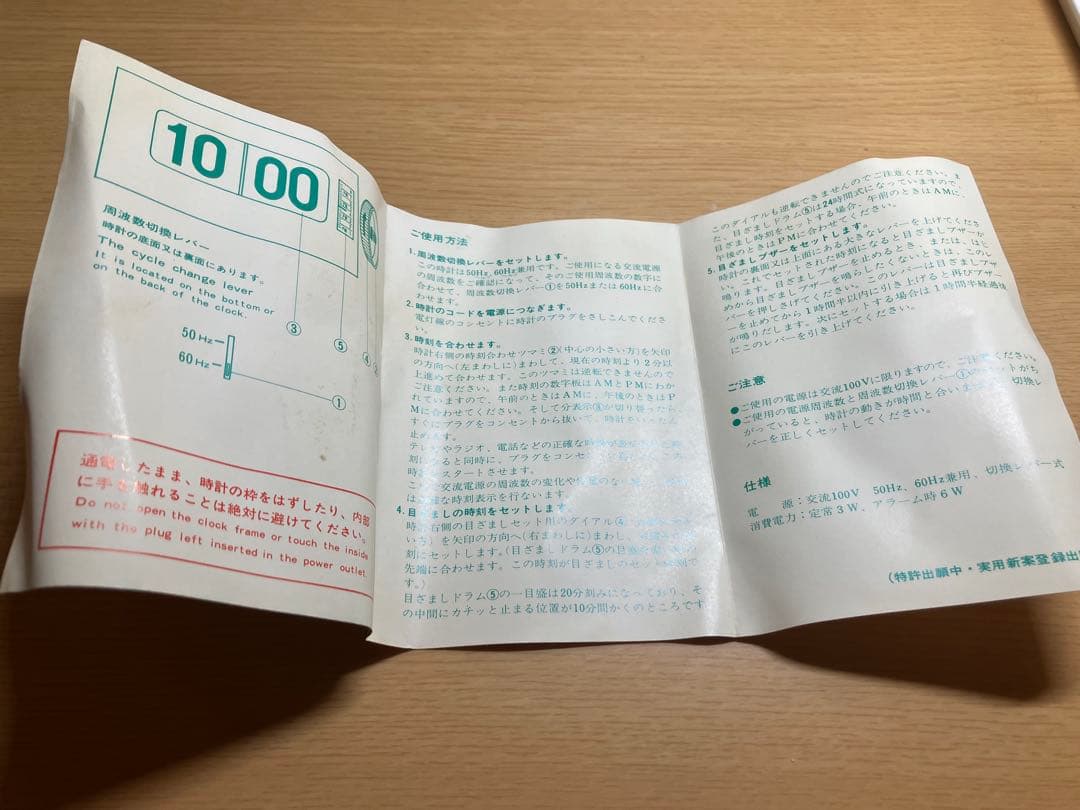 10 00
周波数切換レバー
時計の底面又は裏面にあります。
The cycle change lever
It is located on the bottom or
on the back of the clock.
50Hz
60Hz
③
⑤
④
①
通電したまま、時計の枠をはずしたり、内部
に手を触れることは絶対に避けてください。
Do not open the clock frame or touch the inside
with the plug left inserted in the power outlet.
ご使用方法
1.周波数切換レバーをセットします。
この時計は50Hz,60Hz兼用です。ご使用になる交流電源
の周波数をご確認になって、そのご使用周波数の数字に
合わせて、周波数切換レバー①を50Hzまたは60Hzに合
わせます。
2.時計のコードを電源につなぎます。
電灯線のコンセントに時計のプラグをさしこんでくださ
い。
3.時刻を合わせます。
時計右側の時刻合わせツマミ②(中心の小さい方)を矢印
の方向へ(左まわしに)まわして、現在の時刻より2分以
上進めて合わせます。このツマミは逆転できませんので
ご注意ください。また時刻の数字板はAMとPMにわか
れていますので、午前のときはAMに、午後のときはP
Mに合わせてください。そして分表示③が切り替ったら、
すぐにプラグをコンセントから抜いて、時計をいったん
止めます。
テレビやラジオ、電話などの正確な時
刻になると同時に、プラグをコンセン
時 スタートさせます。
こ 交流電源の周波数の変化や
な時刻表示を行ないます。
4.目ざましの時刻をセットします。
時計右側の目ざましセット用のダイアル④
い方)を矢印の方向へ(右まわしに)まわし、
刻にセットします。(目ざましドラム⑤の目
先端に合わせます。この時刻が目ざましのセット
す。)
目ざましドラム⑤の一目盛は20分刻みになっており、そ
の中間にカチッと止まる位置が10分間かくのところです
このダイアルも逆転できませんのでご注意ください。ま
た、目ざましドラム⑤は24時間式になっていますので、
目ざまし時刻をセットする場合、午前のときはAMに、
午後のときはPMに合わせてください。
5.目ざましブザーをセットします。
時計の裏面又は上面にある大きなレバーを上げてくださ
い。これでセットされた時刻になると目ざましブザーが
鳴ります。目ざましブザーを止めるとき、または、はじ
めから目ざましブザーを鳴らしたくないときは、このレ
バーを押しさげてください。このレバーは目ざましブザ
ーを止めてから1時間半以内に引き上げると再びブザー
が鳴りだします。次にセットする場合は1時間半経過後
にこのレバーを引き上げてください。
ご注意
●ご使用の電源は交流100Vに限りますので、ご注意ください。
●ご使用の電源周波数と周波数切換レバー①のセットがち
がっていると、時計の動きが時間と合いません。切換レ
バーを正しくセットしてください。
仕様
電 源:交流100V 50Hz、60Hz兼用、切換レバー式
消費電力:定常3W、アラーム時6W
(特許出願中・実用新案登録出